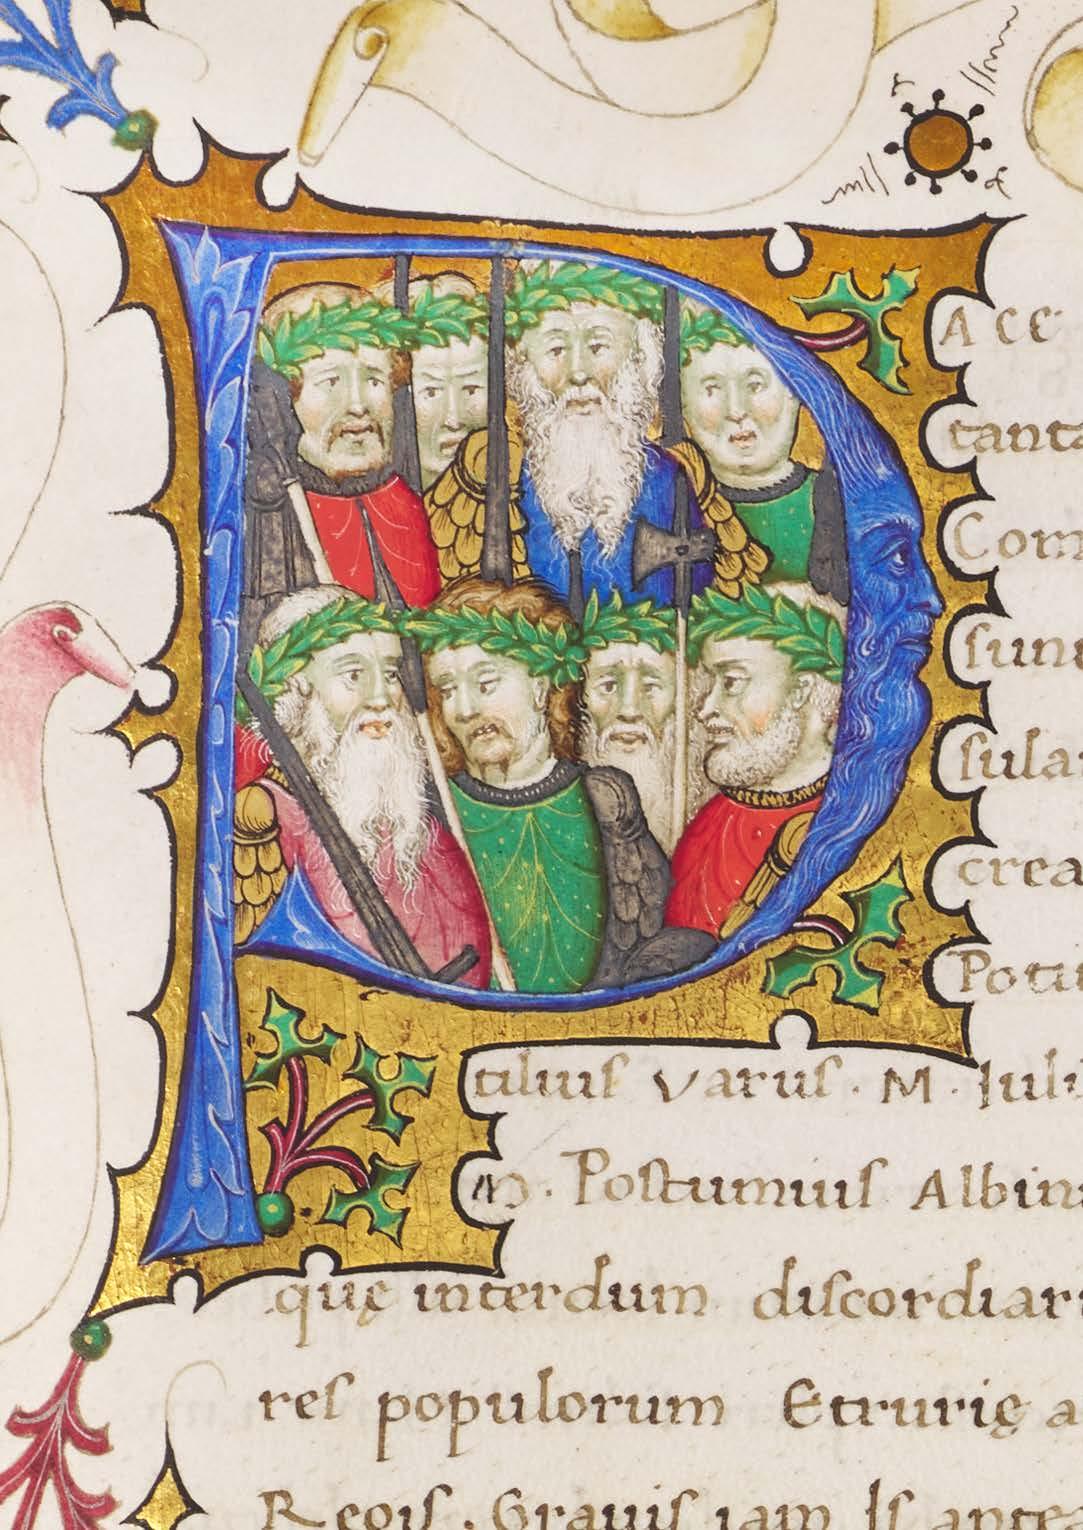 P
ACE
tanta
Com
sunt
sula
crea
Potit
tilius varus. M. Iuli
M. Postumius Albin
quę interdum discordiar
res populorum Etrurię a
Regis. Gravis iam Is antea